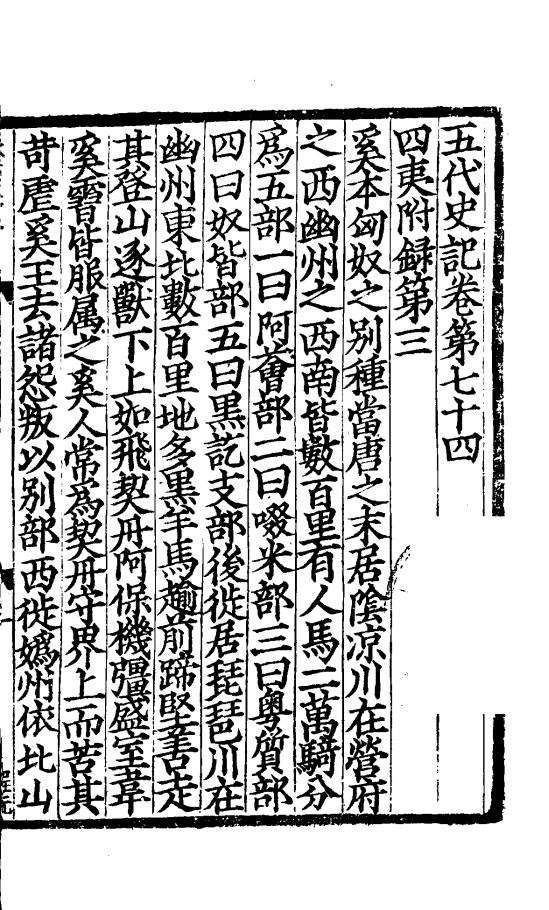 五代史記卷第七十四
四夷附録第三
奚本匈奴之别種當唐之末居陰凉川在營府
之西幽州之西南皆數百里有人馬二萬騎分
爲五部一曰阿薈部二曰啜米部三曰粤質部
四曰奴皆部五曰黒訖支部後徙居琵琶川在
幽州東北數百里地多黒羊馬趫前蹄堅善走
其登山逐獸下上如飛契丹阿保機彊盛室韋
奚霫皆服属之奚人常爲契丹守界上而苦其
苛虐奚王去諸怨叛以别部西徙媯州依北山